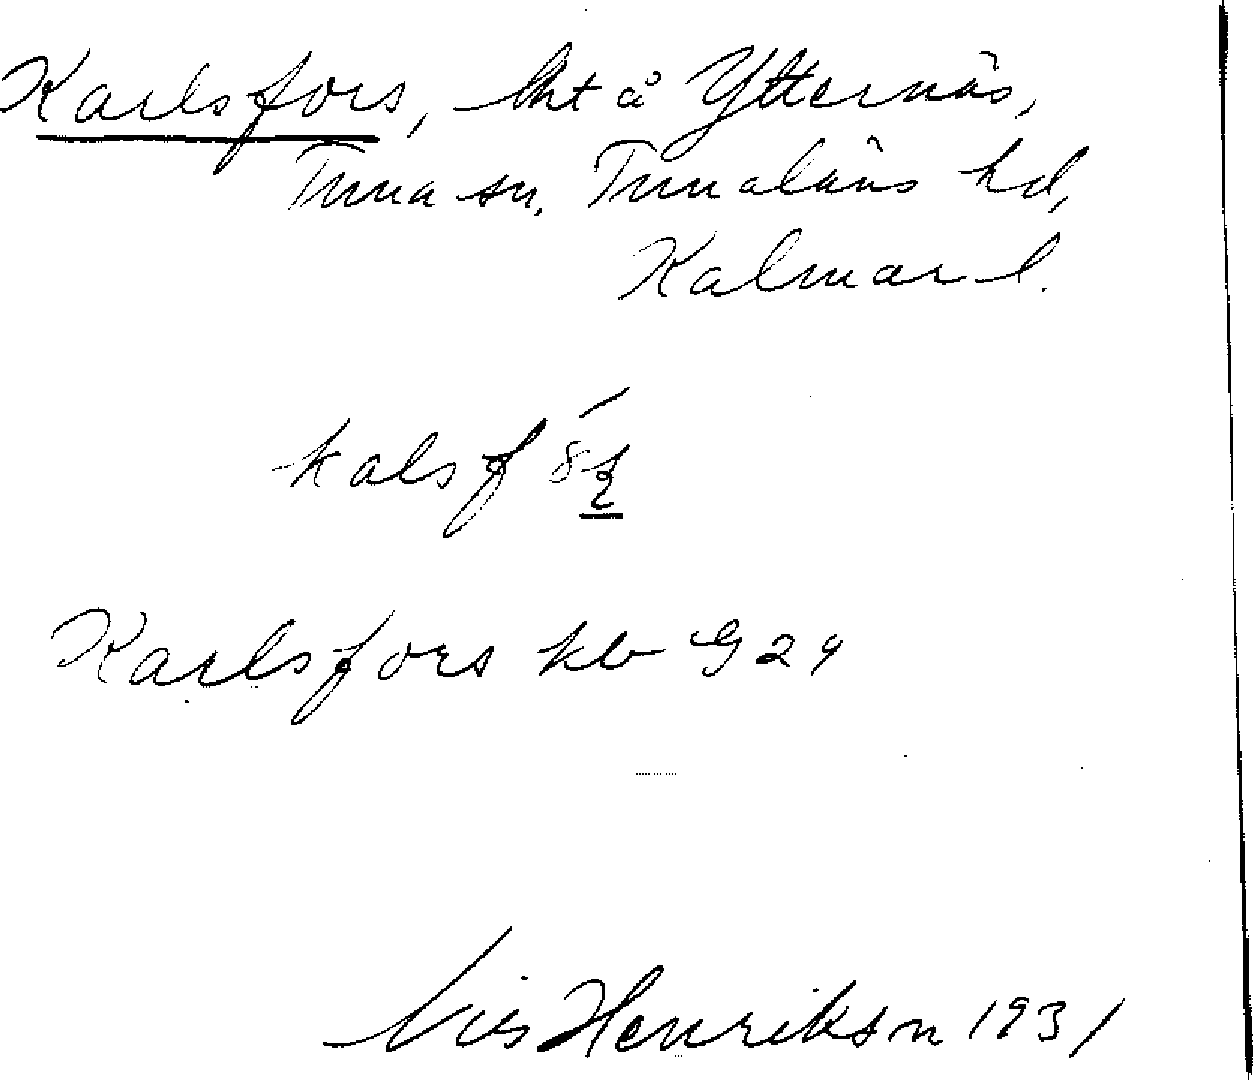 Karlsfors, lht å Ytternäs,
Tuna sn, Tunaläns hd,
Kalmar l.
kalsf
Karlsfors kb G 29
Nils Henrikson 1931